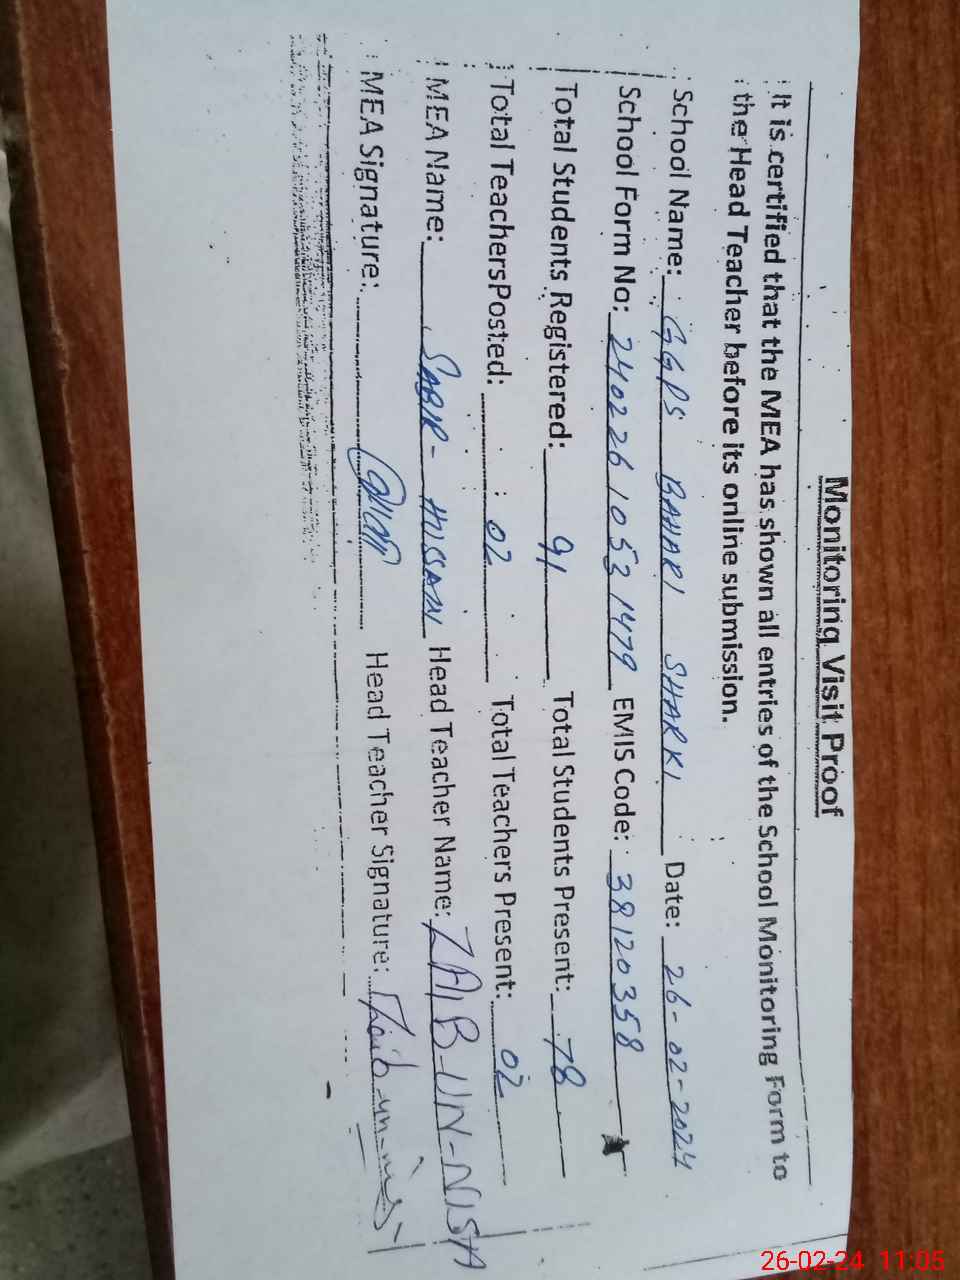 Monitoring Visit Proof
It is certified that the MEA has shown all entries of the School Monitoring Form to
the Head Teacher before its online submission.
School Name: GGPS BAHARI SHARKI Date: 26-02-2024
School Form No: 240226105321479 EMIS Code: 38120358
Total Students Registered: 91 Total Students Present: 78
Total Teachers Posted: 02 Total Teachers Present: 02
MEA Name: SABIR-HUSSAIN Head Teacher Name: ZAIB-UN-NISA
MEA Signature: Head Teacher Signature: Zaib-un-nisa
26-02-24 11:05